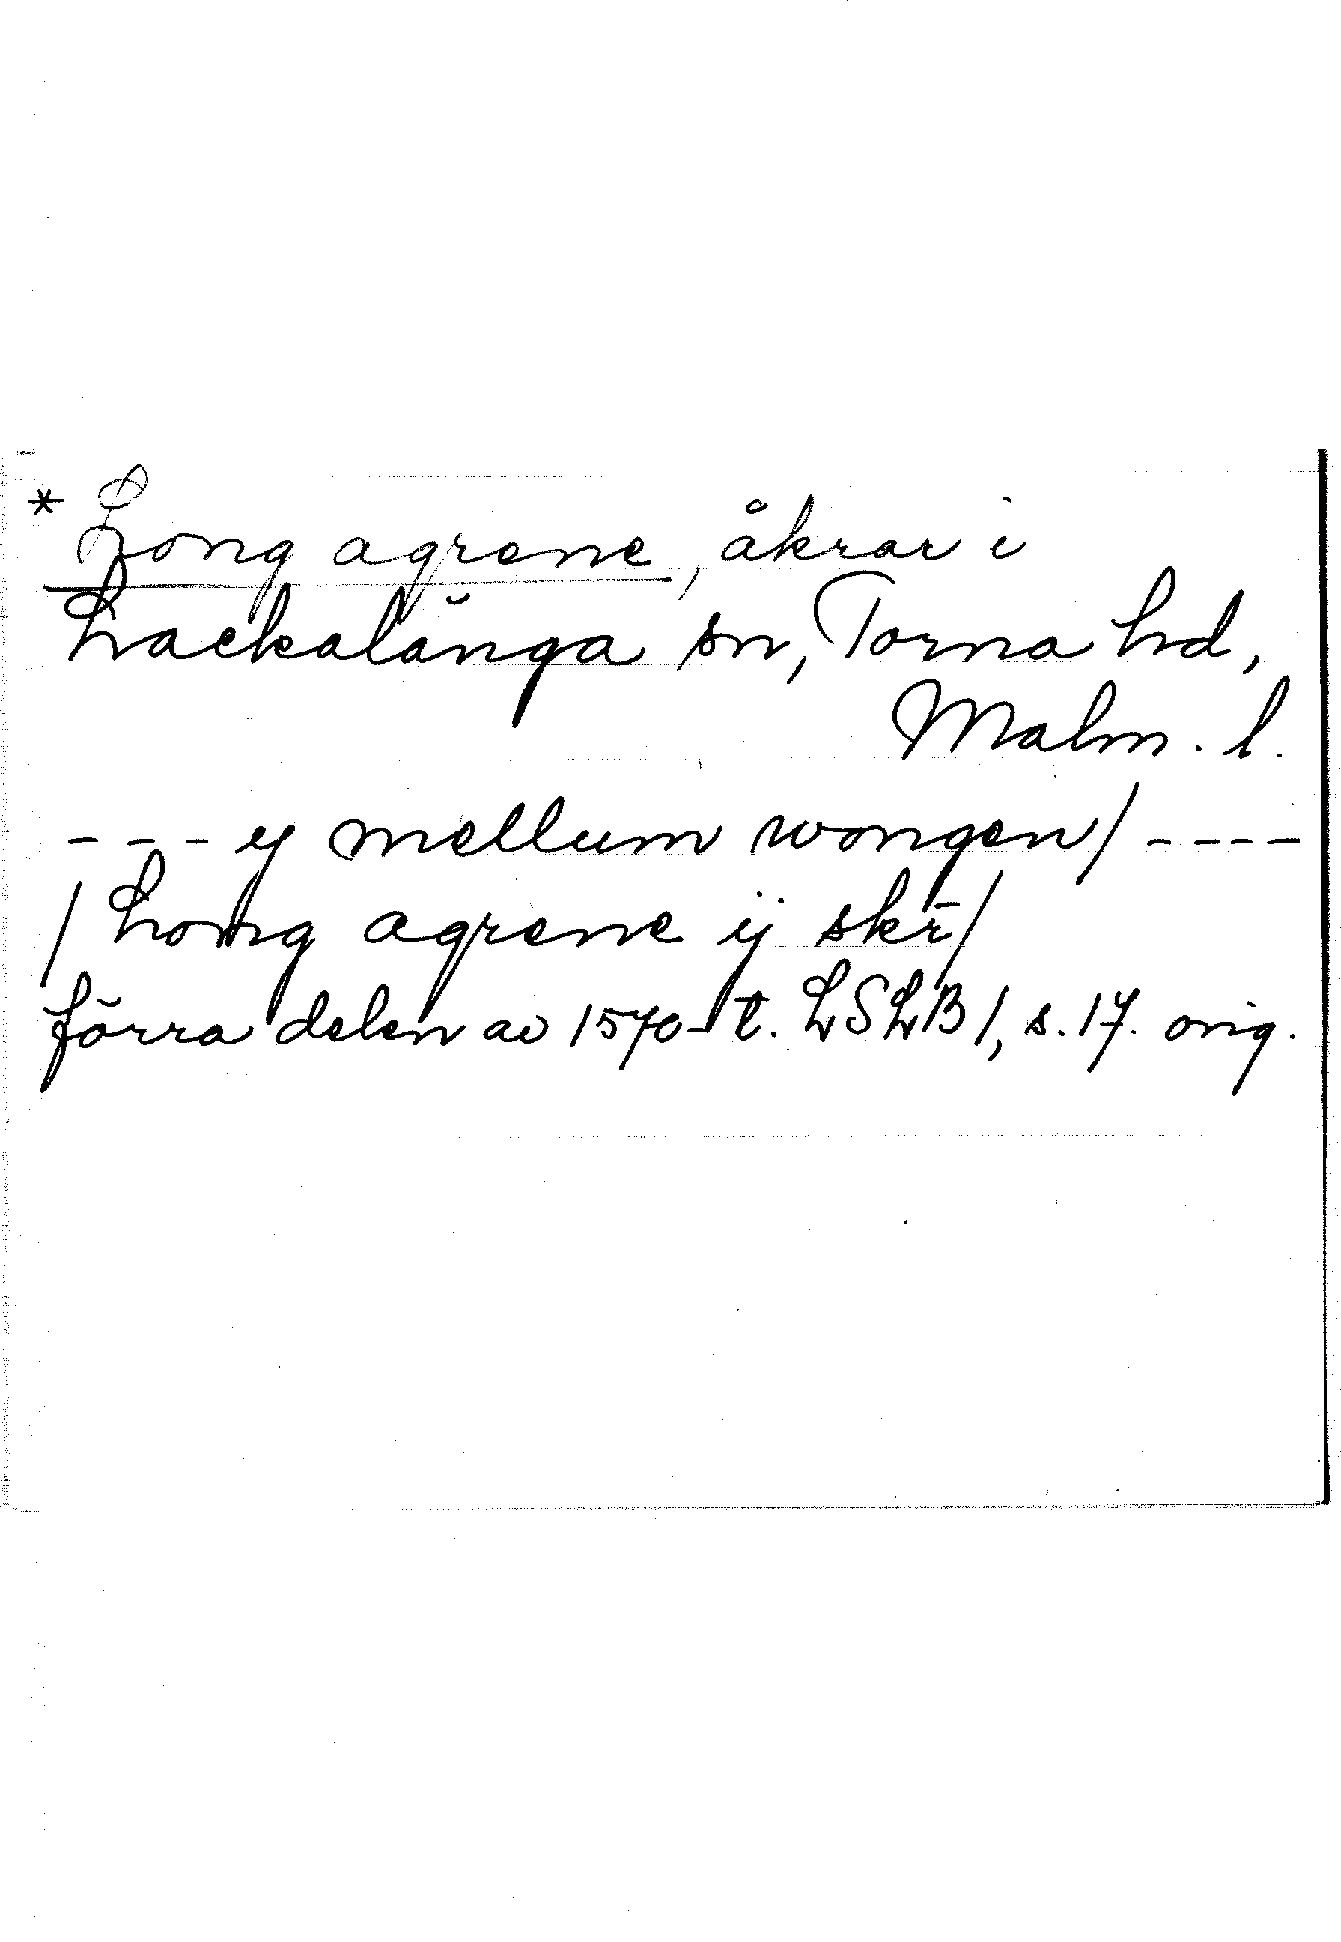 * Long agrene, åkrar i
Lackalänga sn, Torna hd,
Malm. l.
- - - y mellum wongen/ - - - -
/ Long agrene ij skr̄/
förra delen av 1570-t. LSLB 1, s. 17. orig.